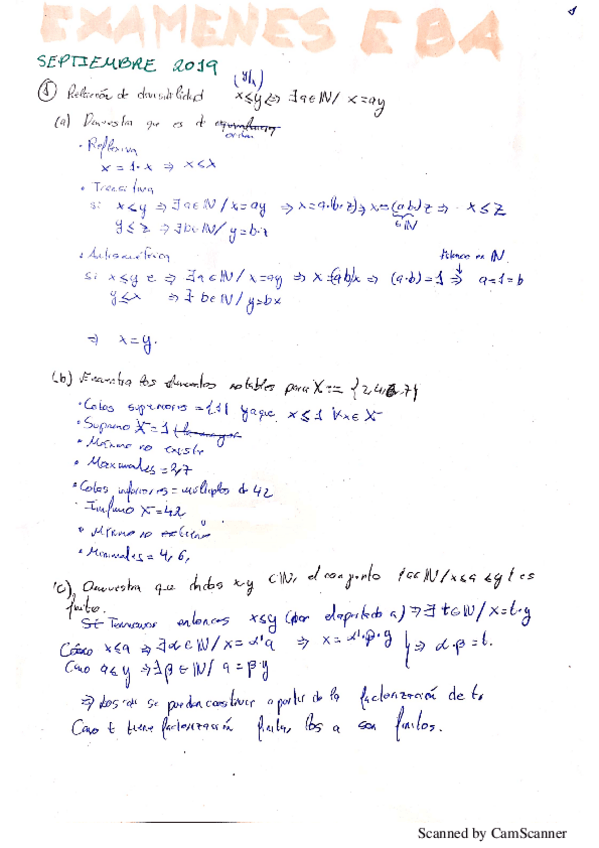 EXAMENES EBA
1
SEPTIEMBRE 2019
(y|x)
① Relación de divisibilidad x≤y⇔∃a∈ℕ/ x=ay
(a) Demuestra que es d equivalencia
orden
· Reflexiva
x = 1·x ⇒ x≤x
· Transitiva
si x≤y ⇒ ∃a∈ℕ/x=ay ⇒ x=a·(b·z) ⇒ x=(a·b)z ⇒ x≤z
y≤z ⇒ ∃b∈ℕ/y=b·z
∈ℕ
· Antisimétrica
en ℕ
si x≤y ⇒ ∃a∈ℕ/x=ay ⇒ x=(ab)x ⇒ (a·b)=1 ⇒ a=1=b
y≤x ⇒ ∃ b∈ℕ/y=bx
⇒ x=y.
(b) Encuentra los elementos notables para X = {2,4,6,7}
· Cotas superiores = {1} ya que x≤1 ∀x∈X
· Supremo X=1
· Máximo no existe
· Maximales = 2,7
· Cotas inferiores = múltiplos d 42
Ínfimo X=42
· Mínimo no
· Minimales = 4, 6,
(c) Demuestra que dados x,y ∈ℕ, el conjunto {a∈ℕ/x≤a≤y} es
finito.
Si Tenemos entonces x≤y (por el apartado a) ⇒ ∃ t∈ℕ/x=t·y
Como x≤a ⇒ ∃α∈ℕ/x=α·a ⇒ x=α·β·y
Como a≤y ⇒ ∃β∈ℕ/ a=β·y ⇒ α·β=t.
⇒ Los se pueden construir a partir de la factorización de t.
Como t tiene factorización finita, los a son finitos.
Scanned by CamScanner